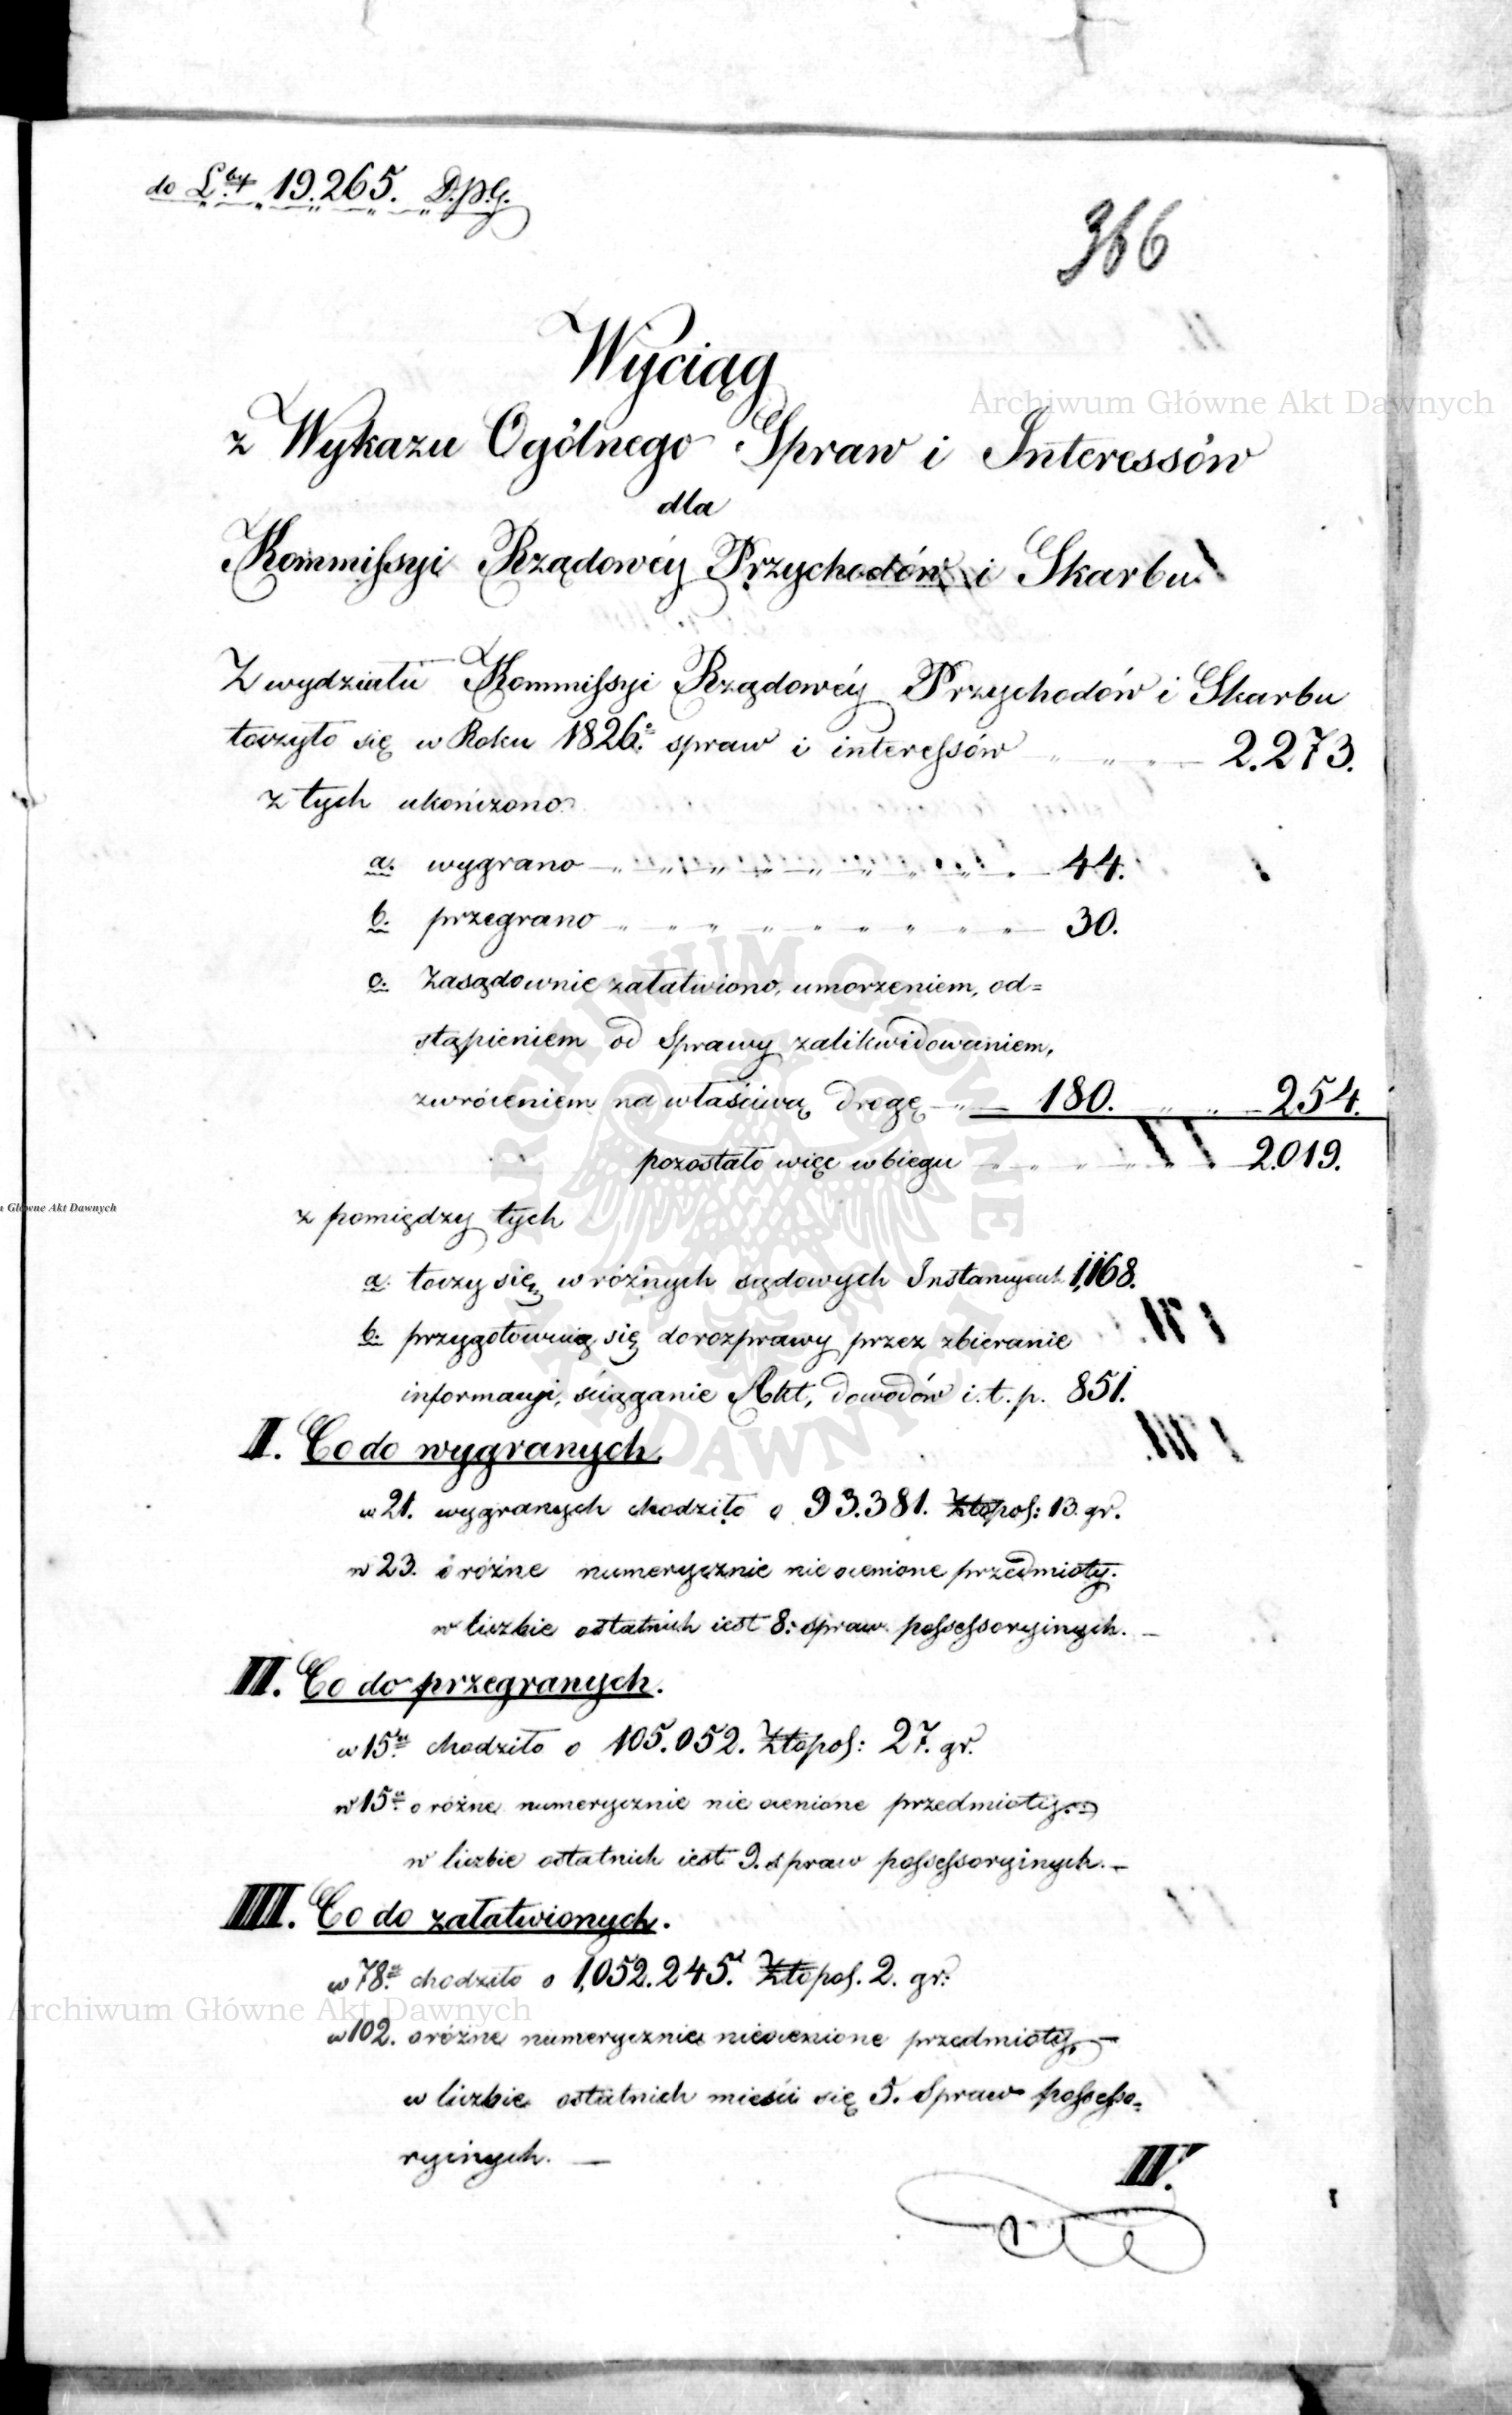 do L.by 19.265. D.p.G.
366
Wyciąg
z Wykazu Ogólnego Spraw i Interessów
dla
Kommissyi Rządowéy Przychodów i Skarbu
Z wydziału Kommissyi Rządowéy Przychodów i Skarbu
toczyło się w Roku 1826. spraw i interessów 2.273.
z tych ukończono
a. wygrano 44.
b. przegrano 30.
c. Zasądownie załatwiono, umorzeniem, od=
stąpieniem od Sprawy zalikwidowaniem,
zwróceniem na właściwą drogę 180. 254.
pozostało więc w biegu 2.019.
z pomiędzy tych
a. toczy się w różnych sądowych Instancyach 1,168.
b. przygotowuią się do rozprawy przez zbieranie
informacyi, ściąganie Akt, dowodów i.t.p. 851.
I. Co do wygranych.
w 21. wygranych chodziło o 93.381. Złopol: 13. gr.
w 23. o różne numerycznie nie ocenione przedmioty.
w liczbie ostatnich iest 8. spraw possessoryinych.
II. Co do przegranych.
w 15tu chodziło o 105.052. Złopol: 27. gr.
w 15tu o różne numerycznie nie ocenione przedmioty.
w liczbie ostatnich iest 9. spraw possessoryinych.
III. Co do załatwionych.
w 78. chodziło o 1,052.245. Złopol. 2. gr.
w 102. o różne numerycznie nieocenione przedmioty,
w liczbie ostatnich mieści się 5. Spraw possesso=
ryinych.
IV.
Archiwum Główne Akt Dawnych
Główne Akt Dawnych
ARCHIWUM GŁÓWNE AKT DAWNYCH
Archiwum Główne Akt Dawnych